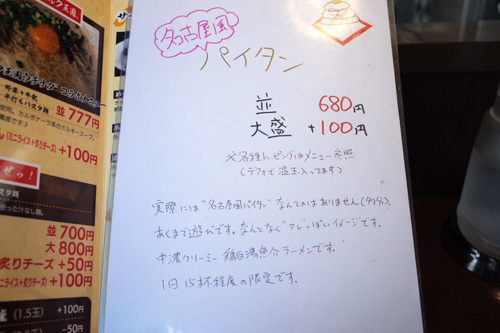 並 777円
+100円
ぜっ!
並 700円
大 800円
炙りチーズ +50円
+100円
(1.5玉) +100円
-50円
名古屋風
パイタン
並 680円
大盛 +100円
※各種トッピングはメニュー参照
(デフォで温玉入ってます)
実際には"名古屋風パイタン"なんてのはありません(多分)。
あくまで遊びです。なんとなく"アレ"っぽいイメージです。
中濃クリーミー 鶏白湯魚介ラーメンです。
1日15杯程度の限定です。